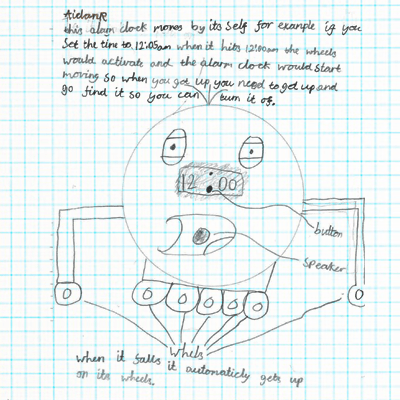 AidanR
this alarm clock moves by its self for example if you
Set the time to 12:05am when it hits 12:00am the wheels
would activate and the alarm clock would start
moving so when you got up you need to get up and
go find it so you can turn it of.
12:00
button
speaker
Whels
when it falls it automaticly gets up
on its wheels.